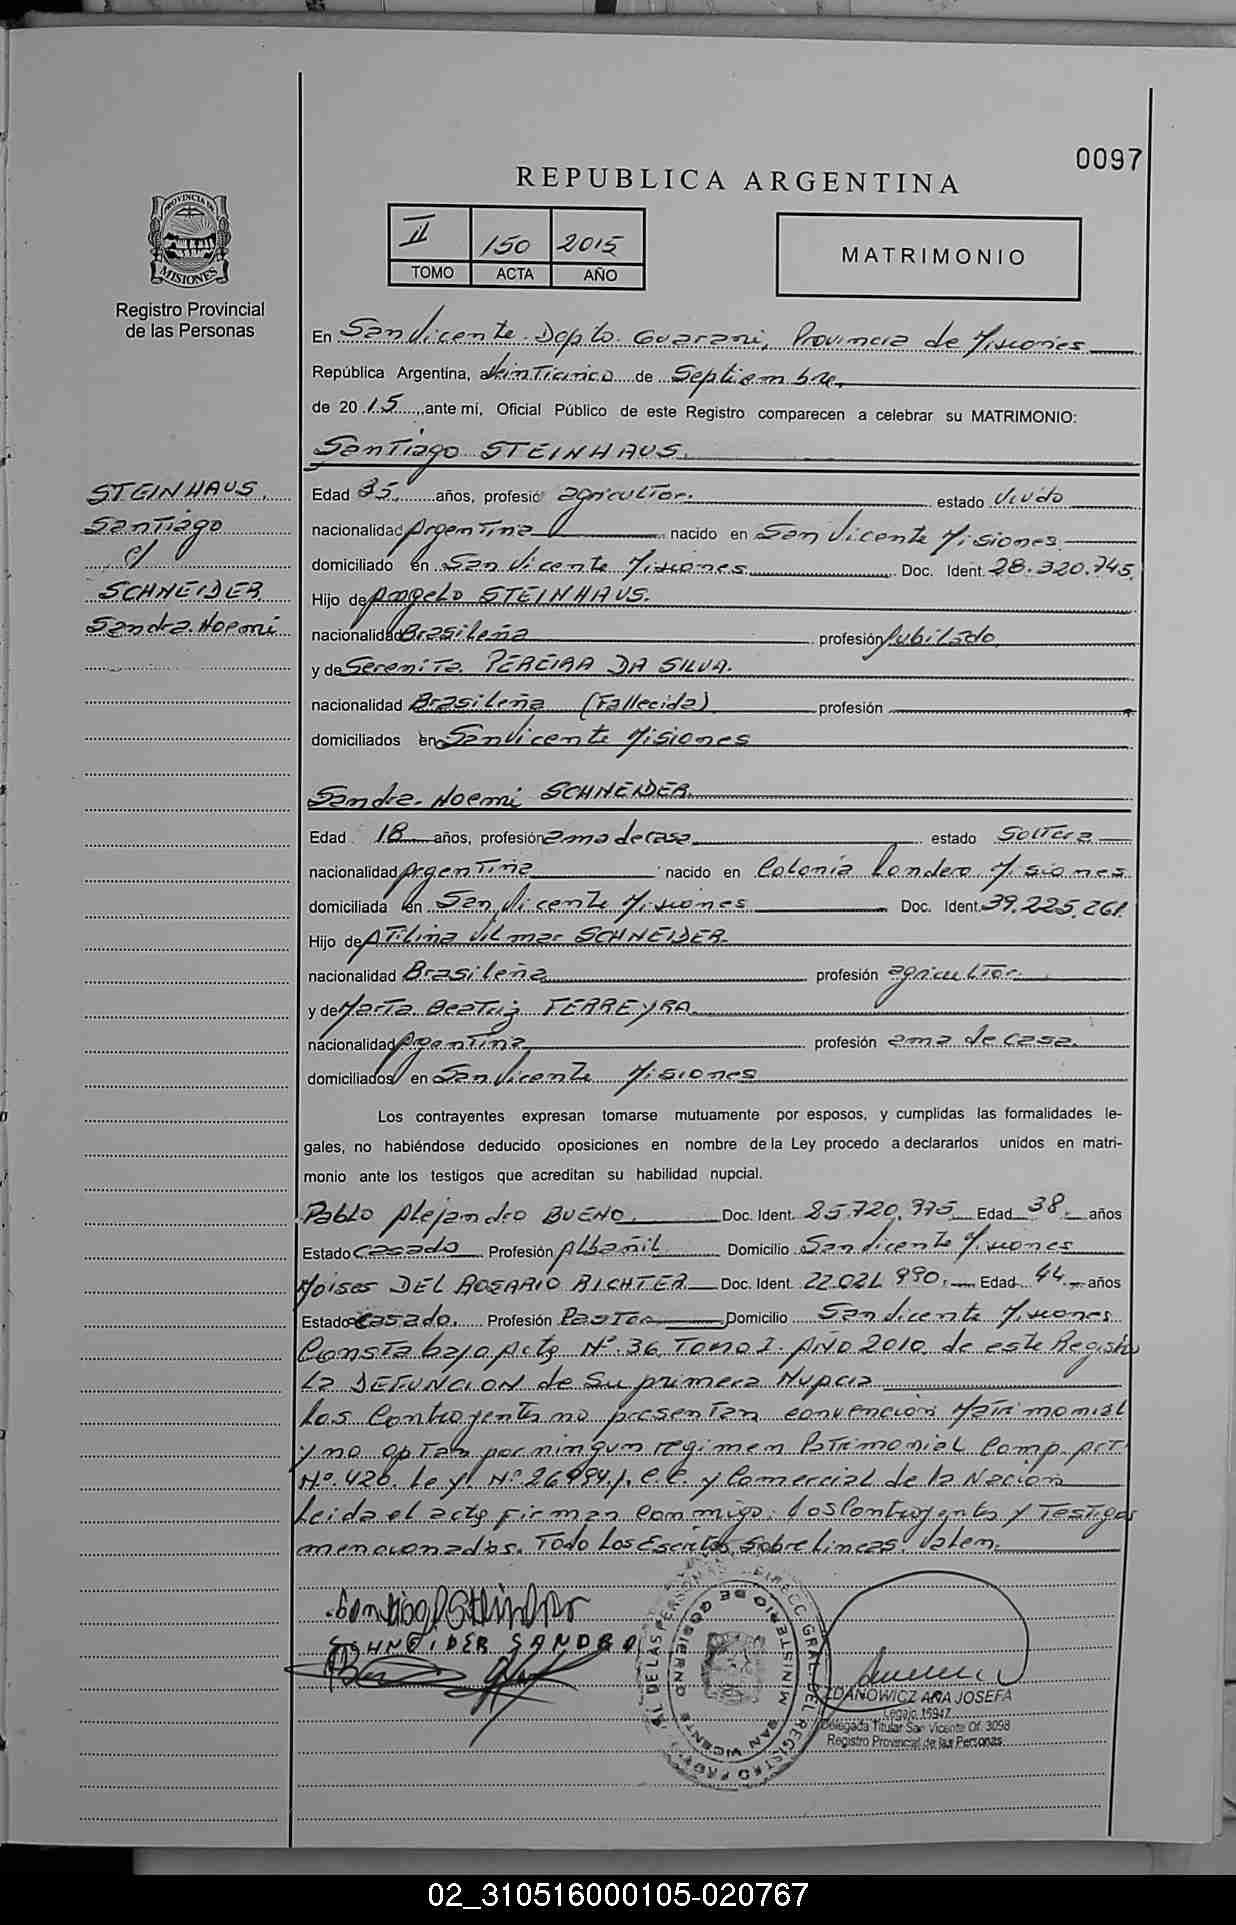 0097
REPUBLICA ARGENTINA
PROVINCIA DE
MISIONES
Registro Provincial
de las Personas
II 150 2015
TOMO ACTA AÑO
MATRIMONIO
En San Vicente. Depto. Guarani, Provincia de Misiones
República Argentina, a Vinticinco de Septiembre.
de 2015, ante mí, Oficial Público de este Registro comparecen a celebrar su MATRIMONIO:
Santiago STEINHAUS.
STEINHAUS.
Santiago
c/
SCHNEIDER
Sandra Noemi
Edad 35. años, profesió agricultor. estado Viudo
nacionalidad Argentina nacido en San Vicente Misiones.
domiciliado en San Vicente Misiones Doc. Ident. 28.320.745.
Hijo de Angelo STEINHAUS.
nacionalidad Brasileña profesión Jubilado,
y de Seremita PEREIRA DA SILVA.
nacionalidad Brasileña (Fallecida) profesión
domiciliados en San Vicente Misiones
Sandra Noemi SCHNEIDER.
Edad 18 años, profesión ama de casa estado Soltera
nacionalidad Argentina nacido en Colonia Londero Misiones
domiciliada en San Vicente Misiones Doc. Ident. 39.225.261.
Hijo de Atilina Vilmar SCHNEIDER.
nacionalidad Brasileña profesión agricultor.
y de Marta Beatriz FERREYRA.
nacionalidad Argentina profesión ama de casa.
domiciliados en San Vicente Misiones
Los contrayentes expresan tomarse mutuamente por esposos, y cumplidas las formalidades le-
gales, no habiéndose deducido oposiciones en nombre de la Ley procedo a declararlos unidos en matri-
monio ante los testigos que acreditan su habilidad nupcial.
Pablo Alejandro BUENO. Doc. Ident. 25.720.975 Edad 38. años
Estado Casado Profesión Albañil Domicilio San Vicente Misiones
Moises DEL ROSARIO RICHTER Doc. Ident. 22.021.990. Edad 44. años
Estado Casado. Profesión Pastor Domicilio San Vicente Misiones
Consta bajo Acta Nº.36. Tomo I. AÑO 2010. de este Registro
La DEFUNCION de Su primera Nupcia
Los Contrayentes no presentan convención Matrimonial
y no optan por ningun regimen Patrimonial Comp. Art.
Nº.420. Ley. Nº.26994/. C.C. y Comercial de la Nación
Leida el acta firman conmigo. los Contrayentes y Testigos
mencionados. Todo Los Escritos Sobre Lineas. Valen.
SCHNEIDER SANDRA
DIRECC. GRAL. DEL REGISTRO PROV. DE LAS PERSONAS
MINISTERIO DE GOBIERNO
SAN VICENTE
ZDANOWICZ ANA JOSEFA
Legajo 15947
Delegada Titular San Vicente Of. 3098
Registro Provincial de las Personas
02_310516000105-020767